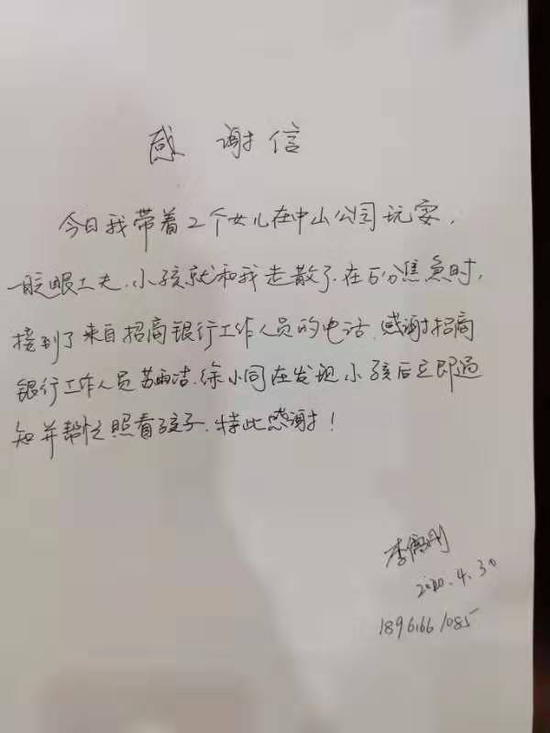 感谢信
今日我带着2个女儿在中山公司玩耍，
一眨眼工夫，小孩就和我走散了，在万分焦急时，
接到了来自招商银行工作人员的电话，感谢招商
银行工作人员苏雨洁、徐小同在发现小孩后立即通
知并帮忙照看孩子，特此感谢！
2020.4.30
18961661085